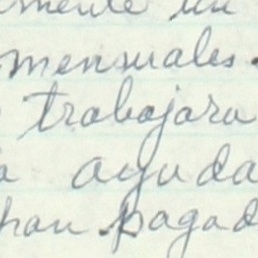 mente un
mensuales.
trabajara
a ayuda
han pagad